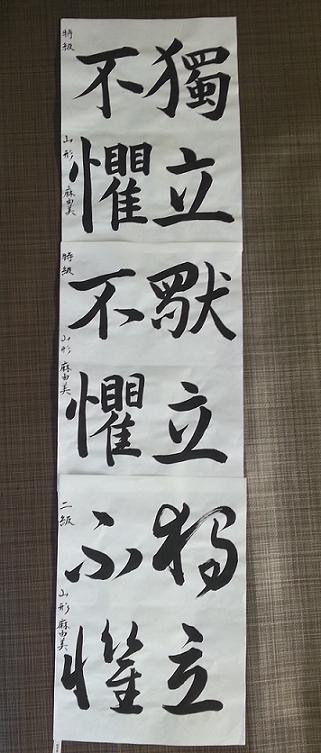 獨立
不懼
特級 山形 麻由美
獸立
不懼
特級 山形 麻由美
獨立
不懼
二級 山形 麻由美